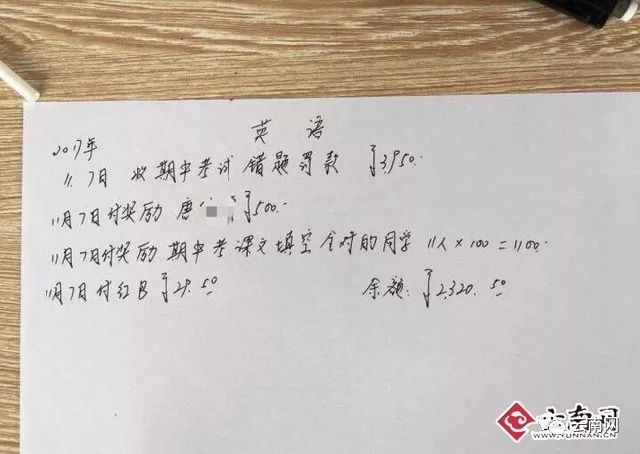 英 语
2017年
11.7日 收期中考试错题罚款 ¥3,950.-
11月7日付奖励 唐 ¥500.-
11月7日付奖励 期中考课文填空全对的同学 11人×100=1,100.-
11月7日付红包 ¥29.50 余额:¥2,320.50
云南网
WWW.YUNNAN.CN
云南网